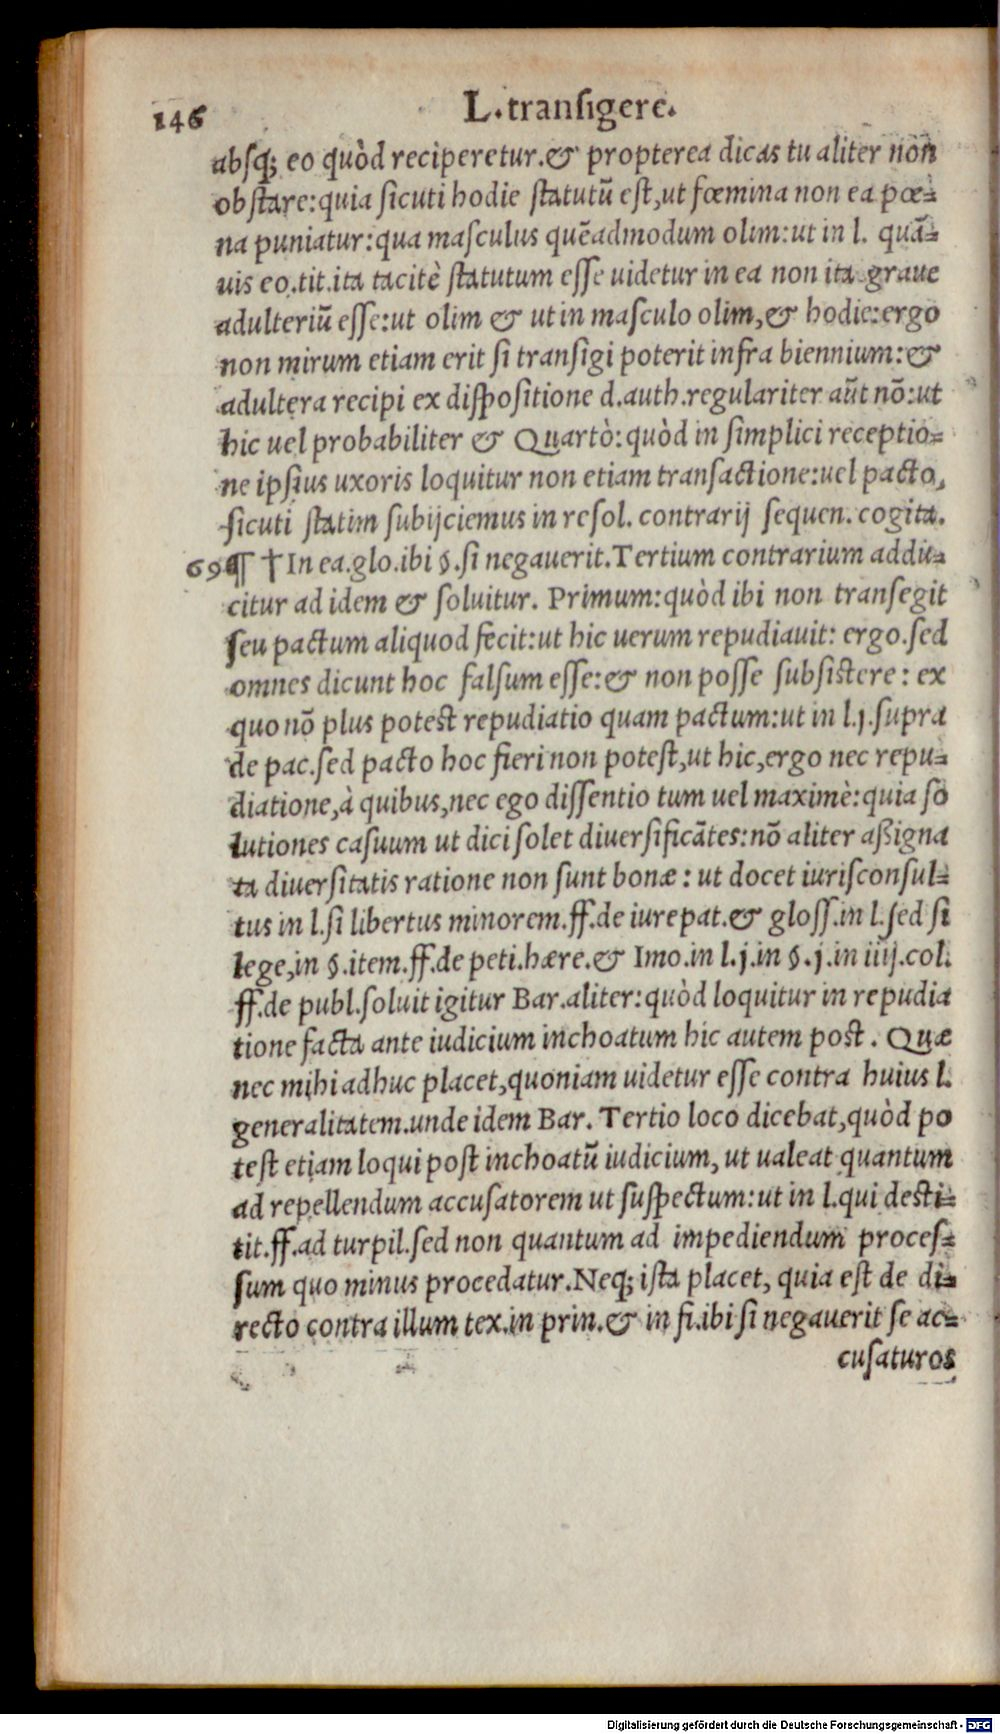 146 L. transigere.
absq; eo quòd reciperetur. & propterea dicas tu aliter non
obstare: quia sicuti hodie statutũ est, ut fœmina non ea pœ-
na puniatur: qua masculus quẽadmodum olim: ut in l. quã-
uis eo. tit. ita tacitè statutum esse uidetur in ea non ita graue
adulteriũ esse: ut olim & ut in masculo olim, & hodie: ergo
non mirum etiam erit si transigi poterit infra biennium: &
adultera recipi ex dispositione d. auth. regulariter aũt nõ: ut
hic uel probabiliter & Quartò: quòd in simplici receptio-
ne ipsius uxoris loquitur non etiam transactione: uel pacto,
sicuti statim subijciemus in resol. contrarij sequen. cogita.
69 ¶ † In ea. glo. ibi §. si negauerit. Tertium contrarium addu-
citur ad idem & soluitur. Primum: quòd ibi non transegit
seu pactum aliquod fecit: ut hic uerum repudiauit: ergo. sed
omnes dicunt hoc falsum esse: & non posse subsistere: ex
quo nõ plus potest repudiatio quam pactum: ut in l. j. supra
de pac. sed pacto hoc fieri non potest, ut hic, ergo nec repu-
diatione, à quibus, nec ego dissentio tum uel maximè: quia so
lutiones casuum ut dici solet diuersificãtes: nõ aliter aßigna
ta diuersitatis ratione non sunt bonæ: ut docet iurisconsul-
tus in l. si libertus minorem. ff. de iure pat. & gloss. in l. sed si
lege, in §. item. ff. de peti. hære. & Imo. in l. j. in §. j. in iiij. col.
ff. de publ. soluit igitur Bar. aliter: quòd loquitur in repudia
tione facta ante iudicium inchoatum hic autem post. Quæ
nec mihi adhuc placet, quoniam uidetur esse contra huius l.
generalitatem. unde idem Bar. Tertio loco dicebat, quòd po
test etiam loqui post inchoatũ iudicium, ut ualeat quantum
ad repellendum accusatorem ut suspectum: ut in l. qui desti-
tit. ff. ad turpil. sed non quantum ad impediendum proces-
sum quo minus procedatur. Neq; ista placet, quia est de di-
recto contra illum tex. in prin. & in fi. ibi si negauerit se ac-
cusaturos
Digitalisierung gefördert durch die Deutsche Forschungsgemeinschaft - DFG